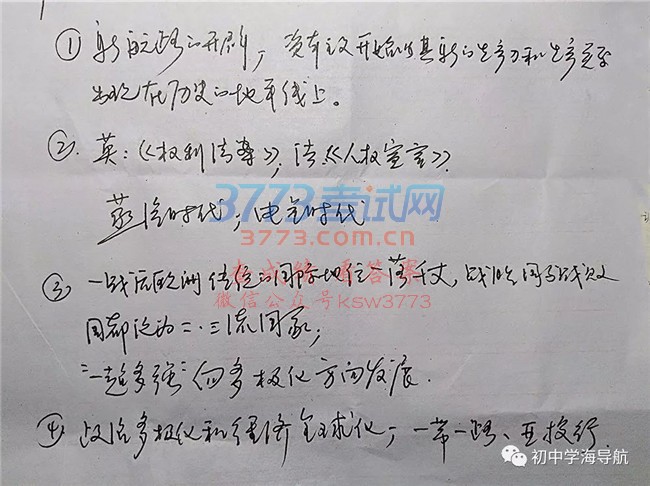 ① 新航路的开辟，资本主义开始以其新的生产力和生产关系
出现在历史的地平线上。
②. 英：《权利法案》，法《人权宣言》.
蒸汽时代；电气时代
3773考试网
3773.com.cn
微信公众号ksw3773
③ 一战后欧洲传统的国际地位一落千丈，战胜国与战败
国都沦为二.三流国家；
"一超多强"向多极化方向发展.
④ 政治多极化和经济全球化；一带一路、亚投行.
初中学海导航